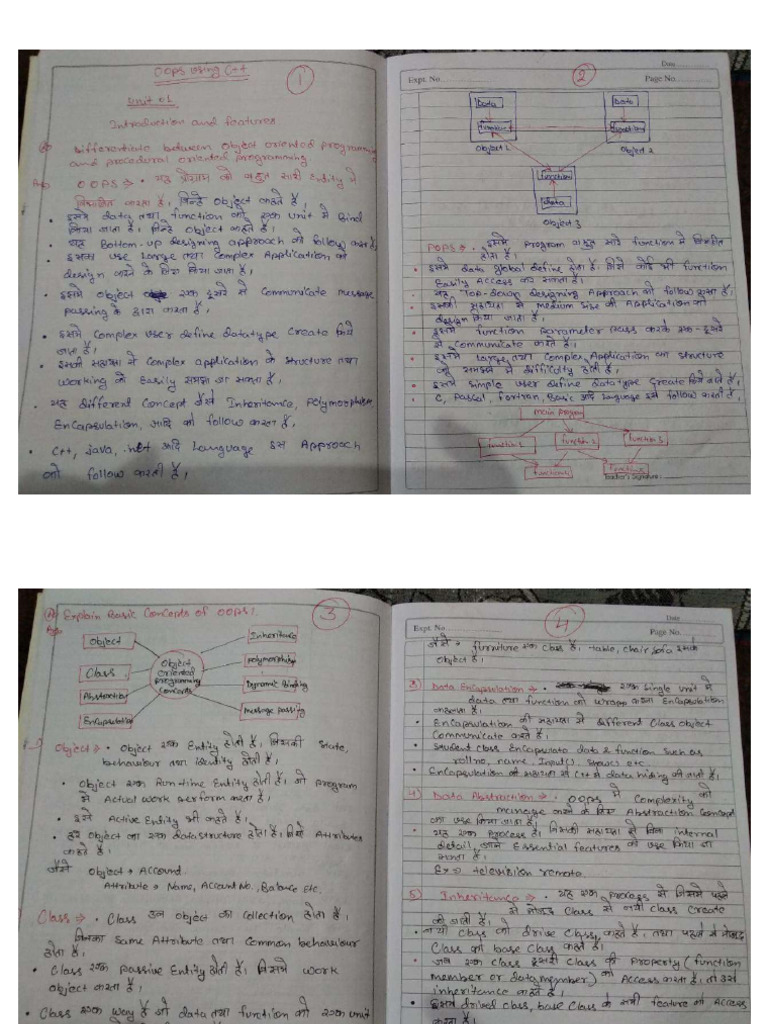 OOPS using C++
1
Unit 01
Introduction and features
Differentiate between object oriented programming
and procedural oriented programming.
OOPS → • यह प्रोग्राम को बहुत सारे Entity में
विभाजित करता है, जिन्हें Object कहते हैं,
• इसमें data तथा function को एक unit में Bind
किया जाता है। जिन्हें Object कहते हैं,
• यह Bottom-up designing approach को follow करता है
• इसका use Large तथा Complex Application को
design करने के लिए किया जाता है,
• इसमें object एक दूसरे से Communicate message
passing के द्वारा करता है,
• इसमें Complex user define datatype Create किये
जाता है,
• इसकी सहायता से Complex application के structure तथा
working को Easily समझा जा सकता है,
• यह different Concept जैसे Inheritance, Polymorphism,
Encapsulation, आदि को follow करता है,
• C++, java, .net आदि Language इस Approach
को follow करती है,
Date
Expt. No.
Page No.
2
Data
Data
function
function
Object 1
Object 2
function
data
Object 3
POPS → • इसमें Program बहुत सारे function में विभाजित
होता है।
• इसमें data global define होता है, जिसे कोई भी function
Easily Access कर सकता है,
• यह Top-down designing Approach को follow करता है,
• इसकी सहायता से medium size की Application को
design किया जाता है,
• इसमें function Parameter pass करके एक-दूसरे
से Communicate करते हैं,
• इसमें Large तथा Complex Application का structure
को समझने में difficulty होती है,
• इसमें Simple user define datatype Create किये जाते है,
• C, Pascal, fortran, Basic आदि language इसे follow करती है,
main program
function 1
function 2
function 3
function
function
Teacher's Signature
Explain Basic Concepts of OOPS!
3
Object
Class
Abstraction
Encapsulation
Object
oriented
programming
Concepts
Inheritance
Polymorphism
Dynamic Binding
message passing
Object → • Object एक Entity होती है, जिसकी state,
behaviour तथा identity होती है,
• Object एक Run-time Entity होती है, जो Program
में Actual work perform करता है,
• इसे Active Entity भी कहते हैं,
• हर object का एक data structure होता है, जिसे Attributes
कहते है,
जैसे Object → Account
Attribute → Name, Account No., Balance Etc.
Class → • Class उन object का Collection होता है,
जिनका Same Attribute तथा Common behaviour
होता है,
• Class एक passive Entity होती है, जिसमे work
object करता है,
• Class एक way है जो data तथा function को एक unit
Date
Expt. No.
Page No.
4
जैसे → furniture एक Class है, table, chair, sofa इसके
object है,
3) Data Encapsulation → • एक single unit में
data तथा function को wrap करना Encapsulation
कहलाता है,
• Encapsulation की सहायता से different Class object
Communicate करते हैं,
• Student class Encapsulate data & function such as
rollno, name, Input() etc.
• Encapsulation की सहायता से C++ में data hiding की जाती है,
4) Data Abstraction → • OOPS में Complexity को
manage करने के लिए Abstraction Concept
का use किया जाता है,
• यह एक Process है, जिसकी सहायता से बिना internal
detail जाने Essential features को use किया जा
सकता है,
Ex → television remote.
5) Inheritance → • यह एक process है जिसमें पहले
से मौजूद class से नयी class create
की जाती है,
• नयी class को drive class कहते हैं, तथा पहले से मौजूद
Class को base class कहते हैं,
• जब एक class दूसरी class की Property (function
member or data member) को Access करता है, तो उसे
inheritance कहते है,
• इसमें drived class, base class के सभी feature को Access
करता है,